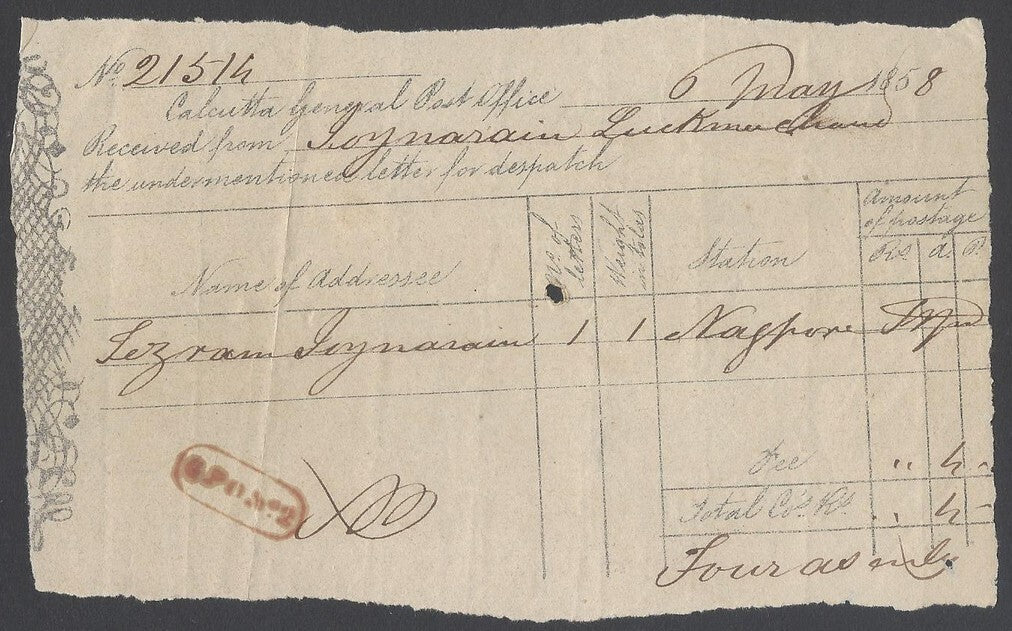 No. 21514
Calcutta General Post Office 6 May 1858
Received from Joynarain Luckmeechand
the undermentioned letter for despatch
Name of Addressee No. of letters Weight in tolas Station Amount of postage
Rs. a. P.
Sezram Joynarain 1 1 Nagpore
Fee .. 4 -
Total Co's. Rs. .. 4 -
G.P.O. No. 2
Four as only